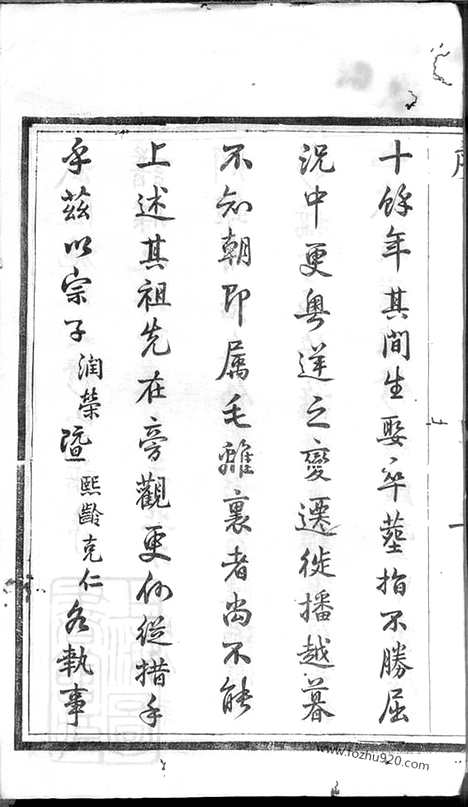 十餘年其間生娶卒塟指不勝屈
況中更粵逆之變遷徙播越暮
不知朝即属毛離裏者尚不能
上述其祖先在旁觀更何從措手
乎茲以宗子润荣暨熙齡克仁各執事
www.fozhu920.com